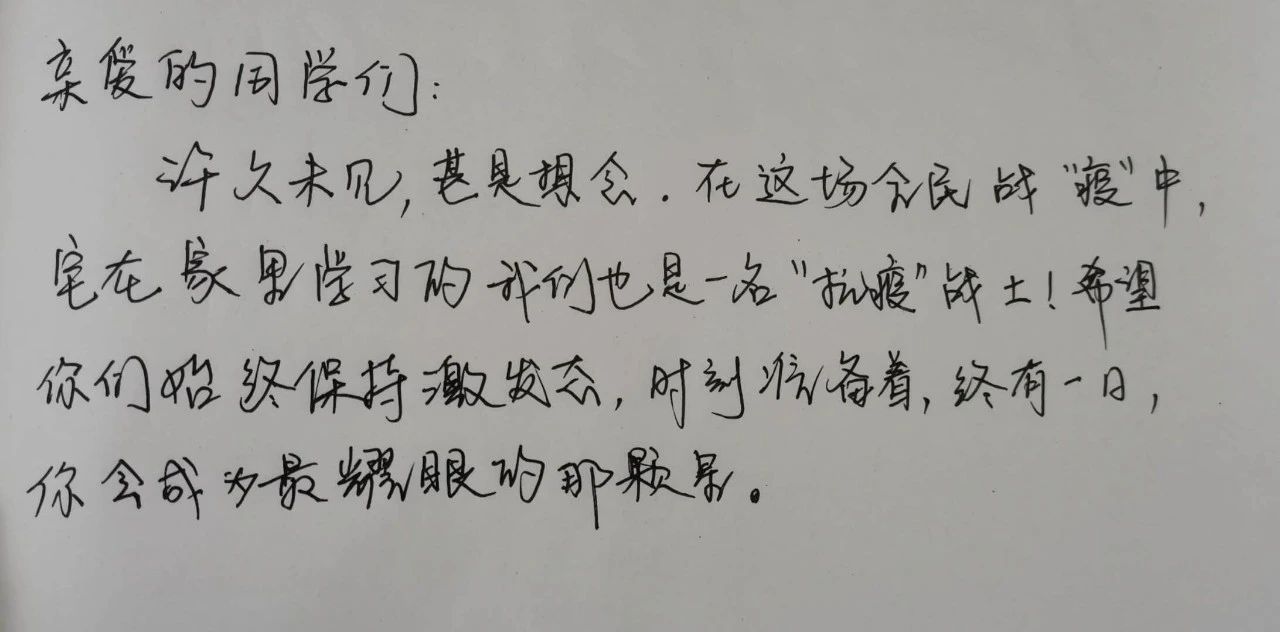 亲爱的同学们:
许久未见,甚是想念.在这场全民战“疫”中,
宅在家里学习的我们也是一名“抗疫”战士!希望
你们始终保持激发态,时刻准备着,终有一日,
你会成为最耀眼的那颗星。